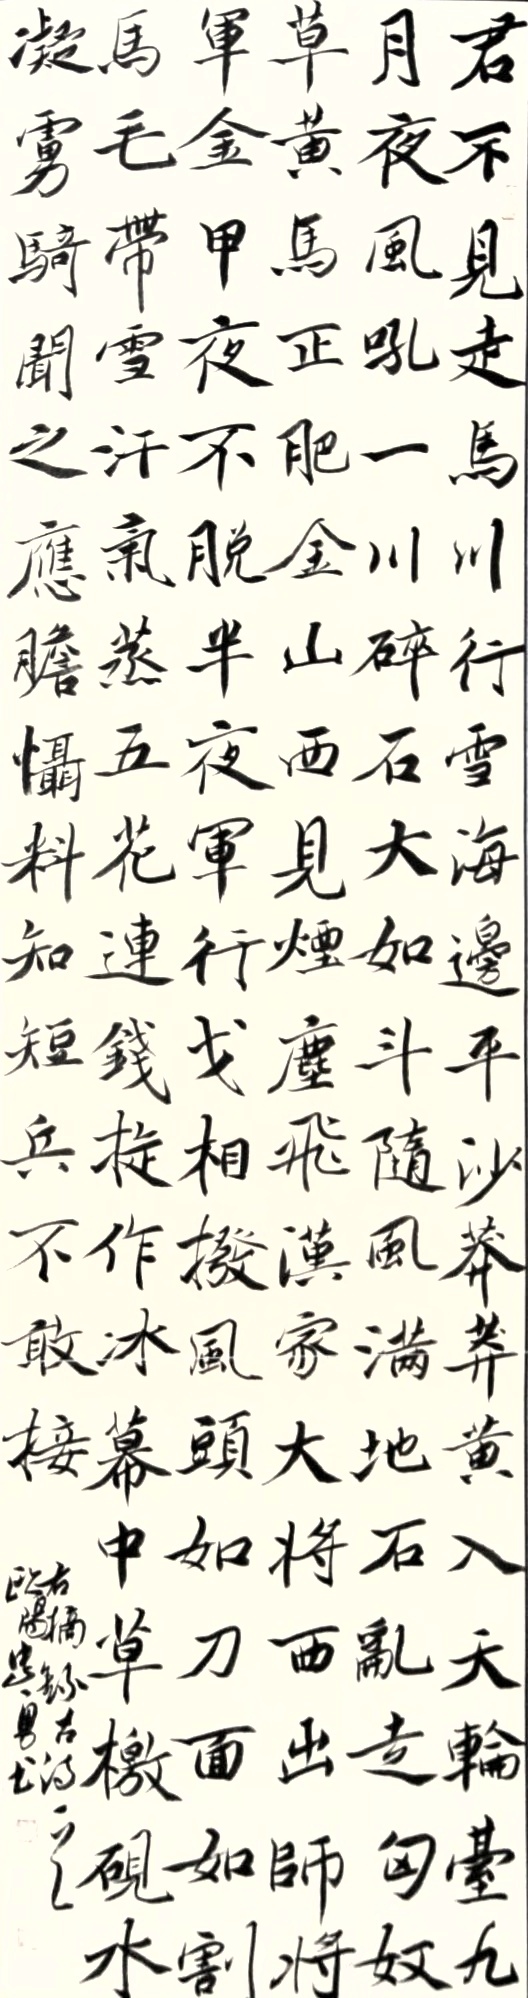 君不見走馬川行雪海邊平沙莽莽黃入天輪臺九
月夜風吼一川碎石大如斗隨風滿地石亂走匈奴
草黃馬正肥金山西見煙塵飛漢家大將西出師將
軍金甲夜不脫半夜軍行戈相撥風頭如刀面如割
馬毛帶雪汗氣蒸五花連錢旋作冰幕中草檄硯水
凝虜騎聞之應膽懾料知短兵不敢接
右摘錄古詩一首
歐陽忠勇書